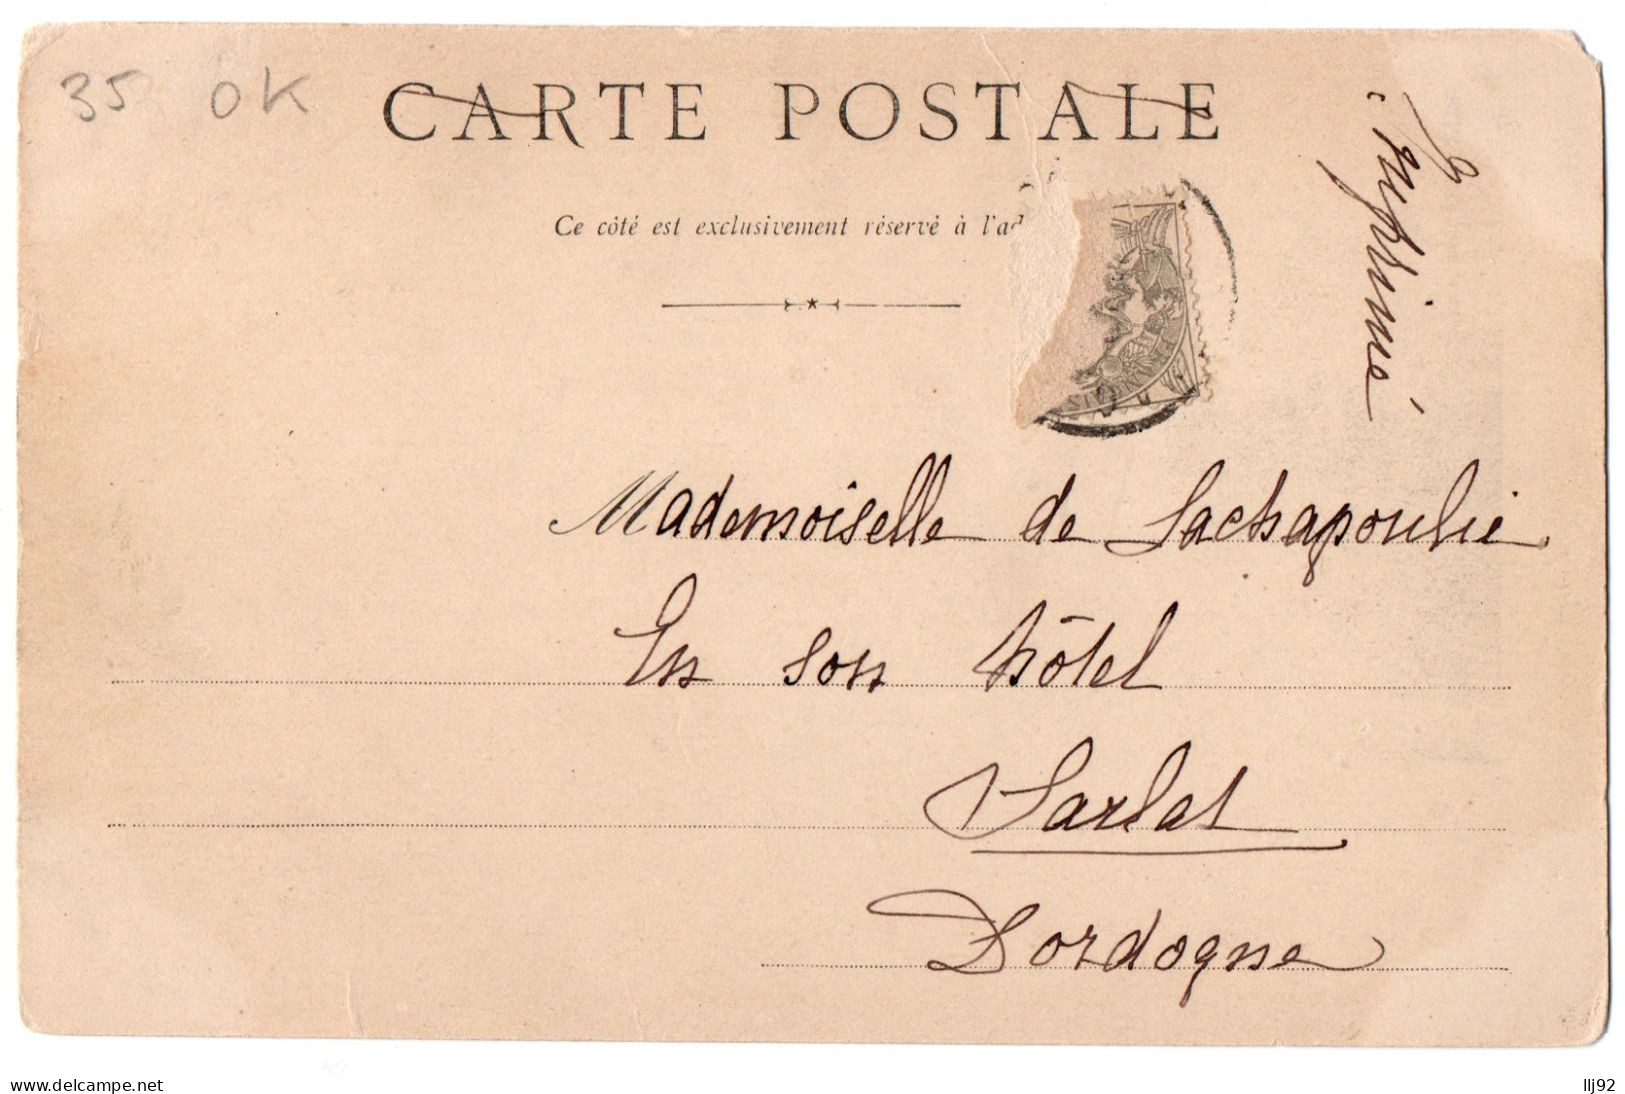 35 OK
CARTE POSTALE
Ce côté est exclusivement réservé à l'ad
Imprimé
Mademoiselle de Lachapoulie
En son hôtel
Sarlat
Dordogne
www.delcampe.net
llj92